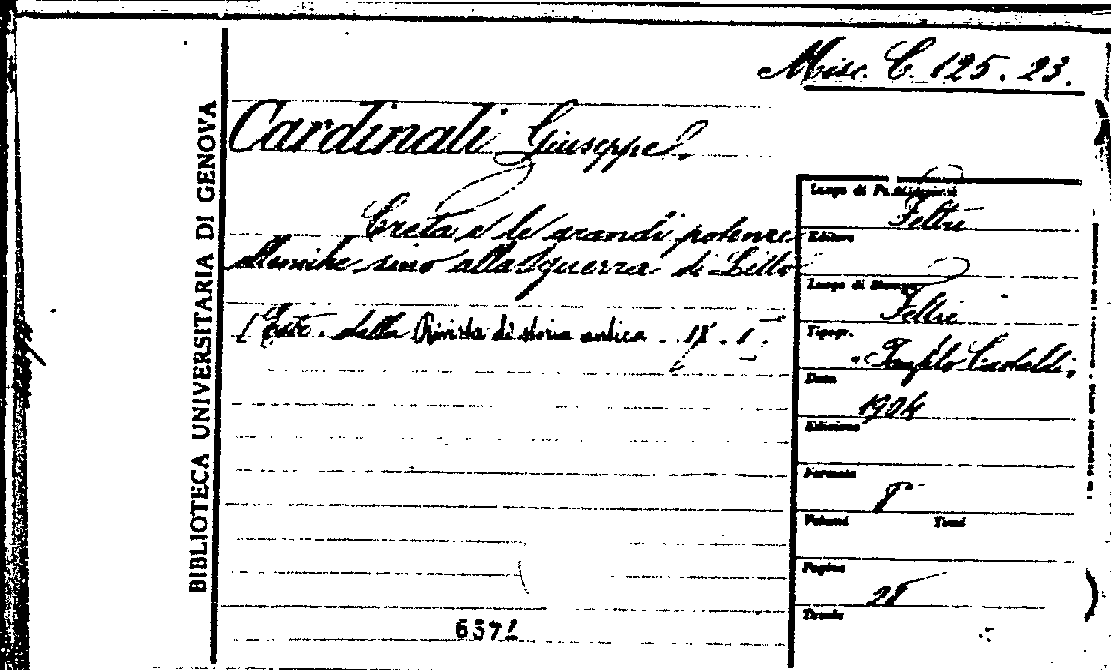 Misc. C. 125. 23.
BIBLIOTECA UNIVERSITARIA DI GENOVA
Cardinali Giuseppe.
Creta e le grandi potenze
elleniche sino alla guerra di Litto
[Estr. dalla Rivista di storia antica. IX. 1.
Luogo di Pubblicazione
Feltre
Editore
Luogo di Stampa
Feltre
Tipogr.
Castaldi
Data
1904
Edizione
Formato
8°
Volumi Tomi
Pagine
28
Tavole
6371